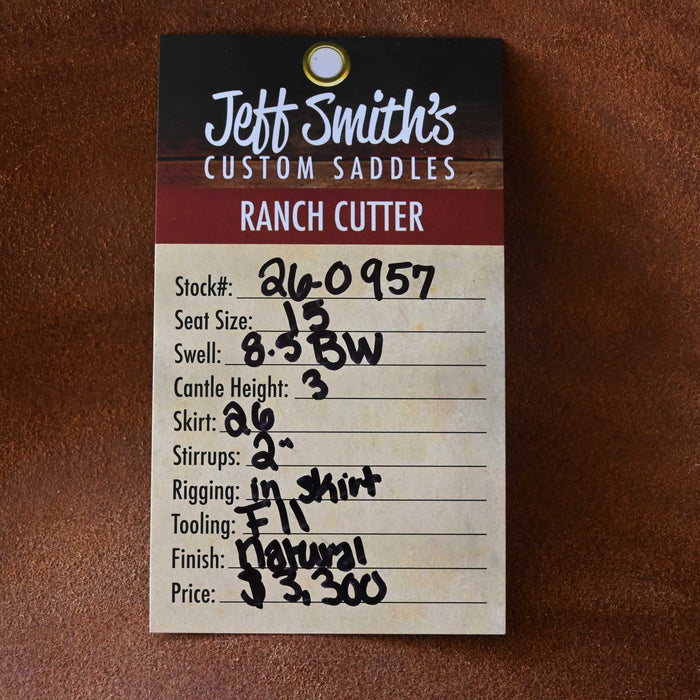 Jeff Smith's
CUSTOM SADDLES
RANCH CUTTER
Stock#: 26-0957
Seat Size: 15
Swell: 8.5 BW
Cantle Height: 3
Skirt: 26
Stirrups: 2"
Rigging: in skirt
Tooling: F11
Finish: natural
Price: $3,300